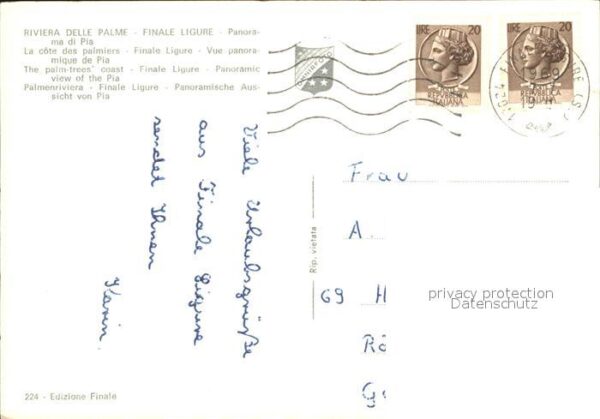 RIVIERA DELLE PALME - FINALE LIGURE - Panora-
ma di Pia
La côte des palmiers - Finale Ligure - Vue panora-
mique de Pia
The palm-trees' coast - Finale Ligure - Panoramic
view of the Pia
Palmenriviera - Finale Ligure - Panoramische Aus-
sicht von Pia
LIRE 20
REPVBBLICA
ITALIANA
LIRE 20
REPVBBLICA
ITALIANA
Viele Urlaubsgrüße
aus Finale Ligure
sendet Ihnen
Karin.
Rip. vietata
Frau
A.
69 H
Rö
G
privacy protection
Datenschutz
224 - Edizione Finale